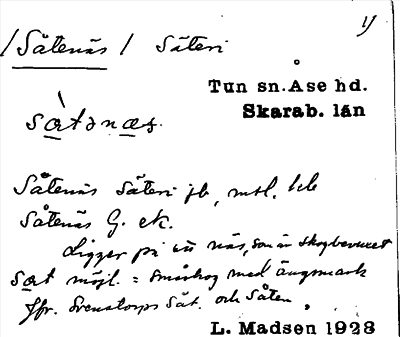 /Såtenäs/ Säteri
Tun sn. Åse hd.
Skarab. län
sɑ̀tənæs.
Såtenäs Säteri jb, mtl. kb
Såtenäs G. ek.
Ligger på ett näs, som är skogbevuxet
Sɑt möjl. = småskog med ängsmark
Jfr. Svenstorps Såt. och Såten,
L. Madsen 1928